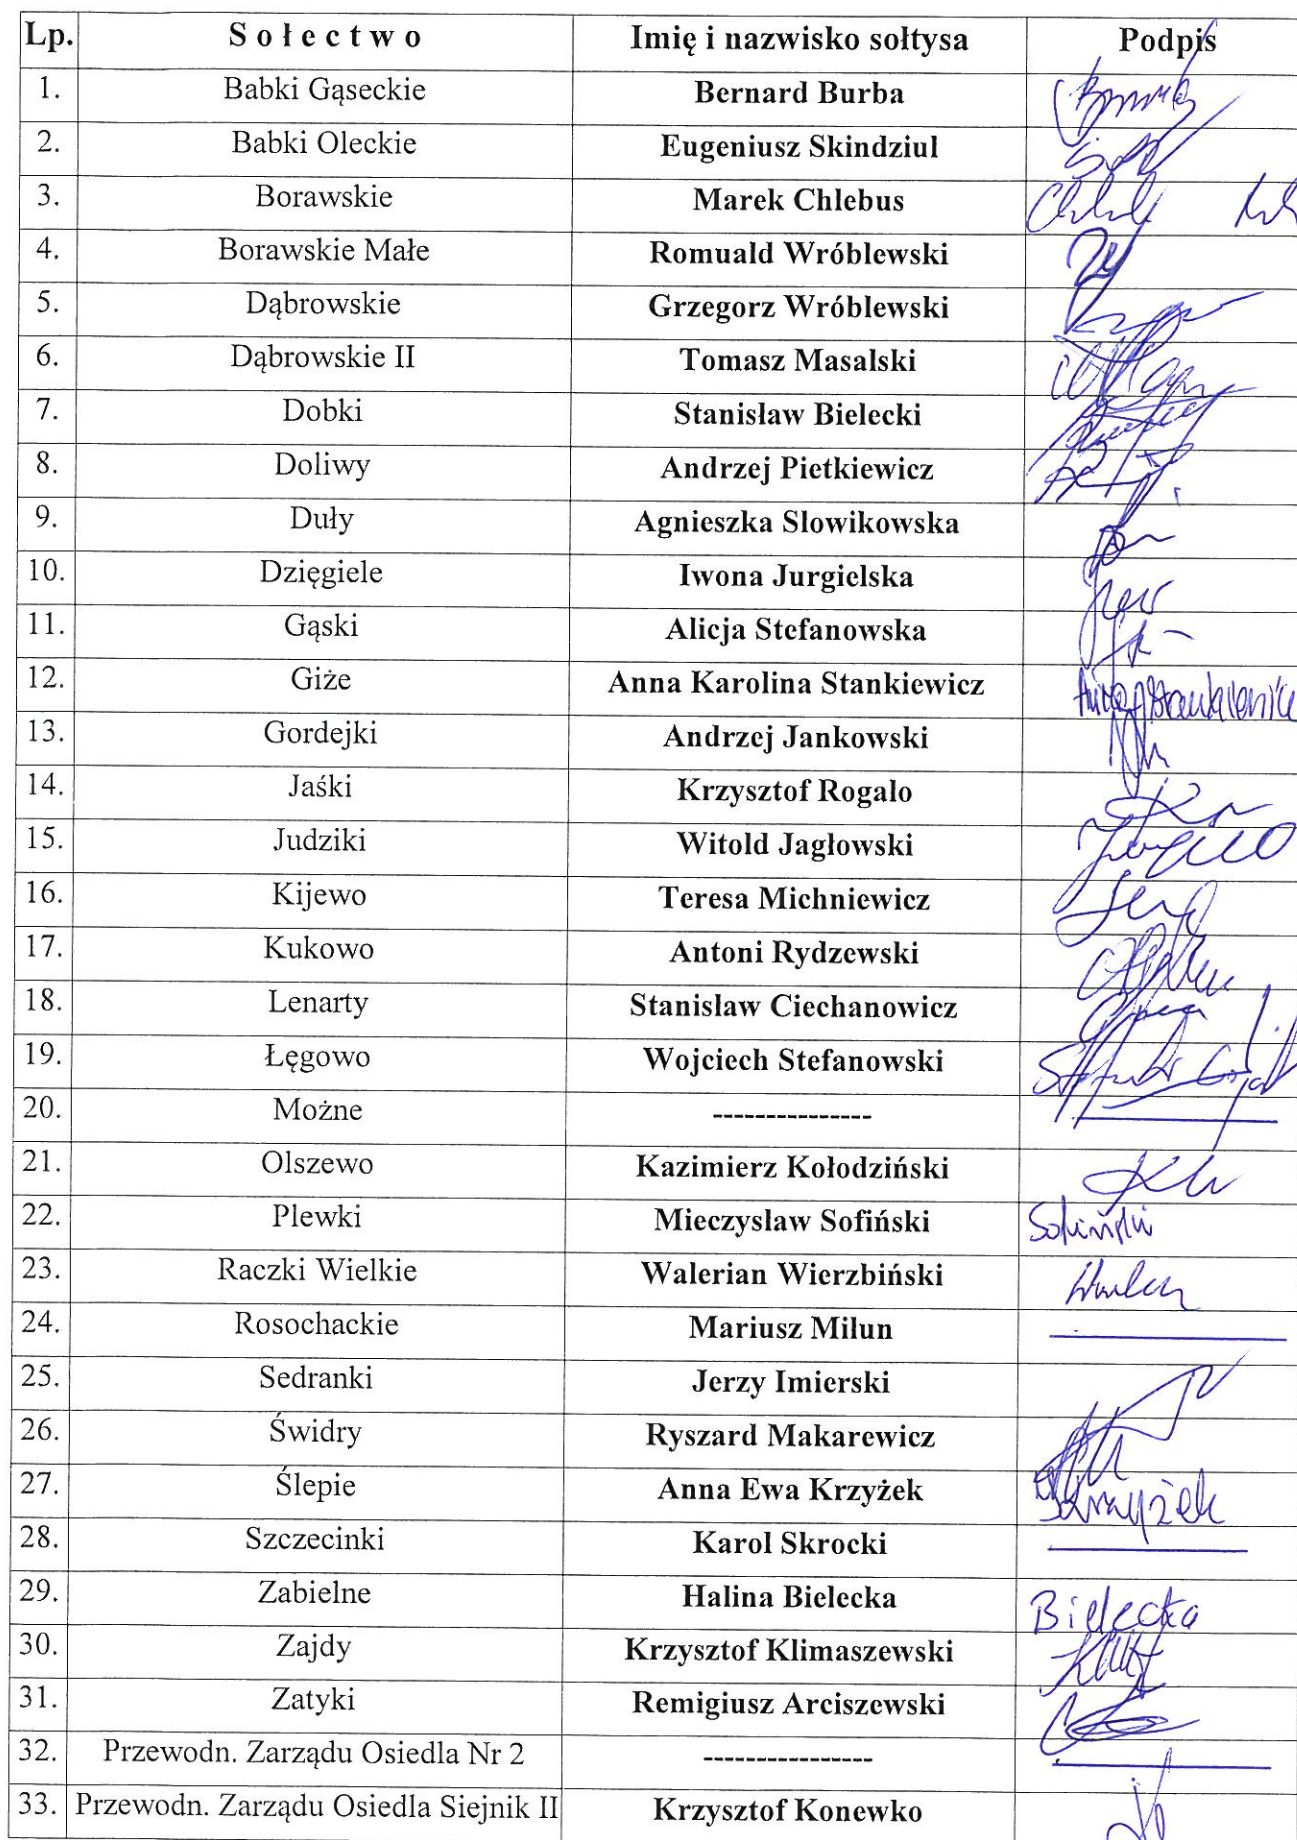 Lp. Sołectwo Imię i nazwisko sołtysa Podpis
1. Babki Gąseckie Bernard Burba
2. Babki Oleckie Eugeniusz Skindziul
3. Borawskie Marek Chlebus
4. Borawskie Małe Romuald Wróblewski
5. Dąbrowskie Grzegorz Wróblewski
6. Dąbrowskie II Tomasz Masalski
7. Dobki Stanisław Bielecki
8. Doliwy Andrzej Pietkiewicz
9. Duły Agnieszka Slowikowska
10. Dzięgiele Iwona Jurgielska
11. Gąski Alicja Stefanowska
12. Giże Anna Karolina Stankiewicz
13. Gordejki Andrzej Jankowski
14. Jaśki Krzysztof Rogalo
15. Judziki Witold Jagłowski
16. Kijewo Teresa Michniewicz
17. Kukowo Antoni Rydzewski
18. Lenarty Stanisław Ciechanowicz
19. Łęgowo Wojciech Stefanowski
20. Możne ---------------
21. Olszewo Kazimierz Kołodziński
22. Plewki Mieczysław Sofiński Sofiński
23. Raczki Wielkie Walerian Wierzbiński
24. Rosochackie Mariusz Milun
25. Sedranki Jerzy Imierski
26. Świdry Ryszard Makarewicz
27. Ślepie Anna Ewa Krzyżek
28. Szczecinki Karol Skrocki
29. Zabielne Halina Bielecka Bielecka
30. Zajdy Krzysztof Klimaszewski
31. Zatyki Remigiusz Arciszewski
32. Przewodn. Zarządu Osiedla Nr 2 ----------------
33. Przewodn. Zarządu Osiedla Siejnik II Krzysztof Konewko